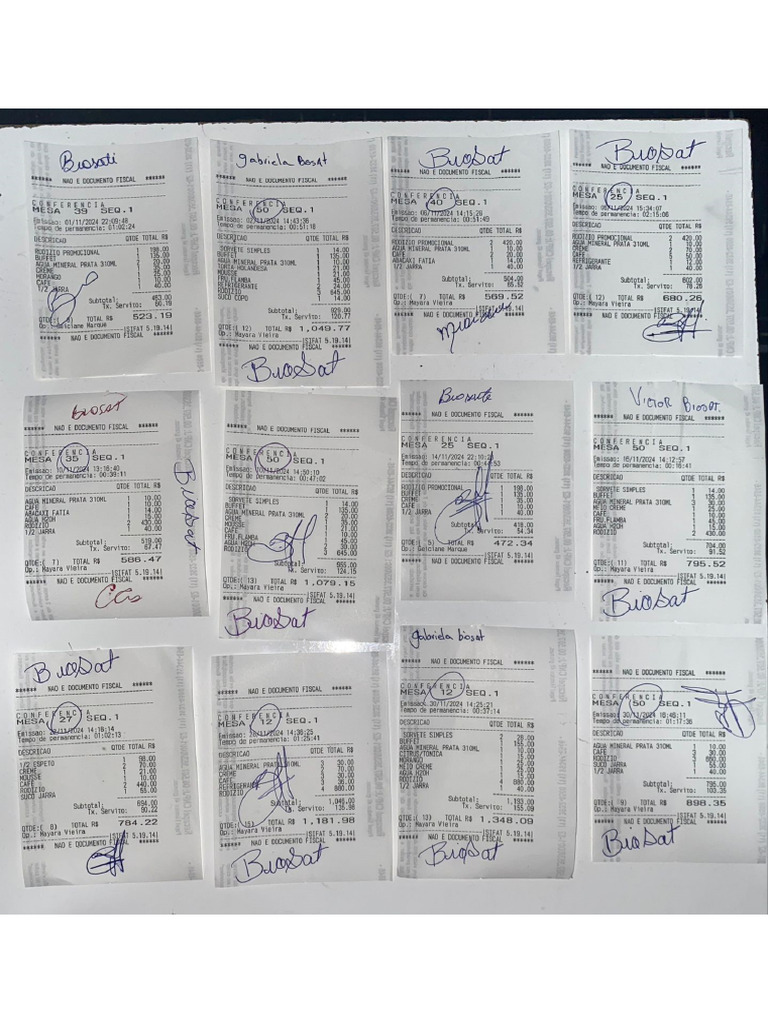 Biosati
****** NAO E DOCUMENTO FISCAL ******
CONFERENCIA
MESA 39 SEQ.1
Emissao: 01/11/2024 22:09:48
Tempo de permanencia: 01:02:24
DESCRICAO QTDE TOTAL R$
RODIZIO PROMOCIONAL 1 198.00
BUFFET 1 135.00
AGUA MINERAL PRATA 310ML
CREME
MORANGO
CAFE
1/2 JARRA 1 40.00
Subtotal: 453.00
Tx. Servico:
TOTAL R$ 523.19
Op.: Geiciane Marque
|SIFAT 5.19.14|
****** NAO E DOCUMENTO FISCAL ******
gabriela Biosat
****** NAO E DOCUMENTO FISCAL ******
CONFERENCIA
MESA 50 SEQ.1
14:43:36
Tempo de permanencia: 00:51:18
DESCRICAO QTDE TOTAL R$
SORVETE SIMPLES 1 14.00
BUFFET 1 135.00
AGUA MINERAL PRATA 310ML
TORTA HOLANDESA 1 21.00
MOUSSE 1 21.00
FRU.FLAMBA 1 45.00
REFRIGERANTE 2 24.00
RODIZIO 3 645.00
SUCO COPO 1 14.00
Subtotal: 929.00
Tx. Servico: 120.77
QTDE:( 12) TOTAL R$ 1,049.77
Op.: Mayara Vieira
|SIFAT 5.19.14|
****** NAO E DOCUMENTO FISCAL ******
BioSat
BioSat
****** NAO E DOCUMENTO FISCAL ******
CONFERENCIA
MESA 40 SEQ.1
Emissao: 06/11/2024 14:15:26
Tempo de permanencia: 00:51:49
DESCRICAO QTDE TOTAL R$
RODIZIO PROMOCIONAL 2 420.00
AGUA MINERAL PRATA 310ML 1 10.00
CAFE 2 20.00
ABACAXI FATIA 1 14.00
1/2 JARRA 1 40.00
Subtotal: 504.00
Tx. Servico: 65.52
QTDE:( 7) TOTAL R$ 569.52
Op.: Mayara Vieira
|SIFAT 5.19.14|
****** NAO E DOCUMENTO FISCAL ******
BioSat
****** NAO E DOCUMENTO FISCAL ******
CONFERENCIA
MESA 25 SEQ.1
15:34:07
Tempo de permanencia: 02:15:06
DESCRICAO QTDE TOTAL R$
RODIZIO PROMOCIONAL 2 420.00
AGUA MINERAL PRATA 310ML 1 10.00
CREME 2 70.00
CAFE 5 50.00
REFRIGERANTE 1 12.00
1/2 JARRA 1 40.00
Subtotal: 602.00
Tx. Servico: 78.26
QTDE:( 12) TOTAL R$ 680.26
Op.: Mayara Vieira
|SIFAT 5.19.14|
****** NAO E DOCUMENTO FISCAL ******
BIOSAT
****** NAO E DOCUMENTO FISCAL ******
CONFERENCIA
MESA 35 SEQ.1
Emissao: 10/11/2024 13:16:40
Tempo de permanencia: 00:39:11
DESCRICAO QTDE TOTAL R$
AGUA MINERAL PRATA 310ML 1 10.00
CAFE 1 10.00
ABACAXI FATIA 1 14.00
AGUA H2OH 1 15.00
RODIZIO 2 430.00
1/2 JARRA 1 40.00
Subtotal: 519.00
Tx. Servico: 67.47
QTDE:( 7) TOTAL R$ 586.47
Op.: Mayara Vieira
|SIFAT 5.19.14|
****** NAO E DOCUMENTO FISCAL ******
BioSat
****** NAO E DOCUMENTO FISCAL ******
CONFERENCIA
MESA 50 SEQ.1
14:50:10
Tempo de permanencia: 00:47:02
DESCRICAO QTDE TOTAL R$
SORVETE SIMPLES 1 14.00
BUFFET 1 135.00
AGUA MINERAL PRATA 310ML 2 20.00
CREME 1 35.00
MOUSSE 1 21.00
CAFE
FRU.FLAMBA 1 45.00
AGUA H2OH 2 30.00
RODIZIO 3 645.00
Subtotal: 955.00
Tx. Servico: 124.15
QTDE:( 13) TOTAL R$ 1,079.15
Op.: Mayara Vieira
|SIFAT 5.19.14|
****** NAO E DOCUMENTO FISCAL ******
BioSat
Biosate
****** NAO E DOCUMENTO FISCAL ******
CONFERENCIA
MESA 25 SEQ.1
Emissao: 14/11/2024
Tempo de permanencia:
DESCRICAO QTDE TOTAL R$
RODIZIO PROMOCIONAL 1 198.00
BUFFET 1 135.00
CREME 1 35.00
CAFE 1 10.00
1/2 JARRA 1 40.00
Subtotal: 418.00
Tx. Servico: 54.34
QTDE:( 5) TOTAL R$ 472.34
Op.: Geiciane Marque
|SIFAT 5.19.14|
****** NAO E DOCUMENTO FISCAL ******
VICTOR BIOSAT.
****** NAO E DOCUMENTO FISCAL ******
CONFERENCIA
MESA 50 SEQ.1
14:12:57
Tempo de permanencia: 00:16:41
DESCRICAO QTDE TOTAL R$
SORVETE SIMPLES 1 14.00
BUFFET 1 135.00
AGUA MINERAL PRATA 310ML 3 30.00
MEIO CREME 1 25.00
CAFE 1 10.00
FRU.FLAMBA 1 45.00
AGUA H2OH 1 15.00
RODIZIO 2 430.00
Subtotal: 704.00
Tx. Servico: 91.52
QTDE:( 11) TOTAL R$ 795.52
Op.: Mayara Vieira
|SIFAT 5.19.14|
****** NAO E DOCUMENTO FISCAL ******
BioSat
BioSat
****** NAO E DOCUMENTO FISCAL ******
CONFERENCIA
MESA 27 SEQ.1
14:16:14
Tempo de permanencia: 01:02:13
DESCRICAO QTDE TOTAL R$
1/2 ESPETO 1 98.00
CREME
MOUSSE 1 21.00
CAFE 1 10.00
RODIZIO 2 440.00
SUCO JARRA 1 55.00
Subtotal: 694.00
Tx. Servico: 90.22
QTDE:( 8) TOTAL R$ 784.22
Op.: Mayara Vieira
|SIFAT 5.19.14|
****** NAO E DOCUMENTO FISCAL ******
****** NAO E DOCUMENTO FISCAL ******
CONFERENCIA
MESA 12 SEQ.1
14:36:25
Tempo de permanencia: 01:25:41
DESCRICAO QTDE TOTAL R$
AGUA MINERAL PRATA 310ML 3 30.00
CREME 2 70.00
CAFE 3 30.00
REFRIGERANTE 3 36.00
RODIZIO 4 880.00
Subtotal: 1,046.00
Tx. Servico: 135.98
QTDE:( 15) TOTAL R$ 1,181.98
Op.: Mayara Vieira
|SIFAT 5.19.14|
****** NAO E DOCUMENTO FISCAL ******
BioSat
gabriela biosat
****** NAO E DOCUMENTO FISCAL ******
CONFERENCIA
MESA 12 SEQ.1
Emissao: 30/11/2024 14:25:21
Tempo de permanencia: 00:37:14
DESCRICAO QTDE TOTAL R$
SORVETE SIMPLES 2 28.00
BUFFET 1 155.00
AGUA MINERAL PRATA 310ML 1 10.00
CITRUS/TONICA
MORANGO
MEIO CREME
AGUA H2OH 1 15.00
RODIZIO 4 880.00
1/2 JARRA 1 40.00
Subtotal: 1,193.00
Tx. Servico: 155.09
QTDE:( 13) TOTAL R$ 1,348.09
Op.: Mayara Vieira
|SIFAT 5.19.14|
****** NAO E DOCUMENTO FISCAL ******
BioSat
****** NAO E DOCUMENTO FISCAL ******
CONFERENCIA
MESA 50 SEQ.1
Emissao: 30/11/2024 16:46:11
Tempo de permanencia: 01:17:36
DESCRICAO QTDE TOTAL R$
AGUA MINERAL PRATA 310ML 1 10.00
CAFE 3 30.00
RODIZIO 3 660.00
SUCO JARRA 1 55.00
1/2 JARRA 1 40.00
Subtotal: 795.00
Tx. Servico: 103.35
QTDE:( 9) TOTAL R$ 898.35
Op.: Mayara Vieira
|SIFAT 5.19.14|
****** NAO E DOCUMENTO FISCAL ******
BioSat